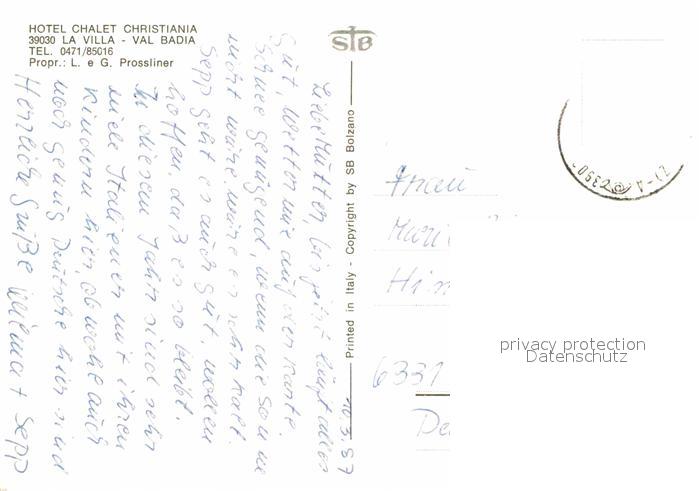 HOTEL CHALET CHRISTIANIA
39030 LA VILLA - VAL BADIA
TEL. 0471/85016
Propr.: L. e G. Prossliner
STB
Printed in Italy - Copyright by SB Bolzano
10.3.87
Liebe Mutter, bis jetzt läuft alles
gut, Wetter wie auf der Karte.
Schnee genügend, wenn die Sonne
nicht wäre, wäre es sehr kalt.
Sepp geht es auch gut, wollen
hoffen, daß es so bleibt.
In diesem Jahr sind sehr
viele Italiener mit ihren
Kindern hier, obwohl auch
noch genug Deutsche hier sind
Herzliche Grüße Wilma + Sepp
Frau
6331
privacy protection
Datenschutz